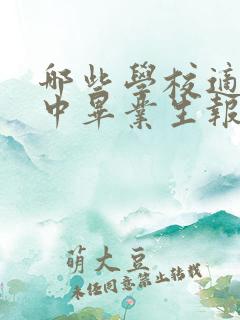 哪些學校適
中畢業生報
萌大豆
未经同意禁止转载